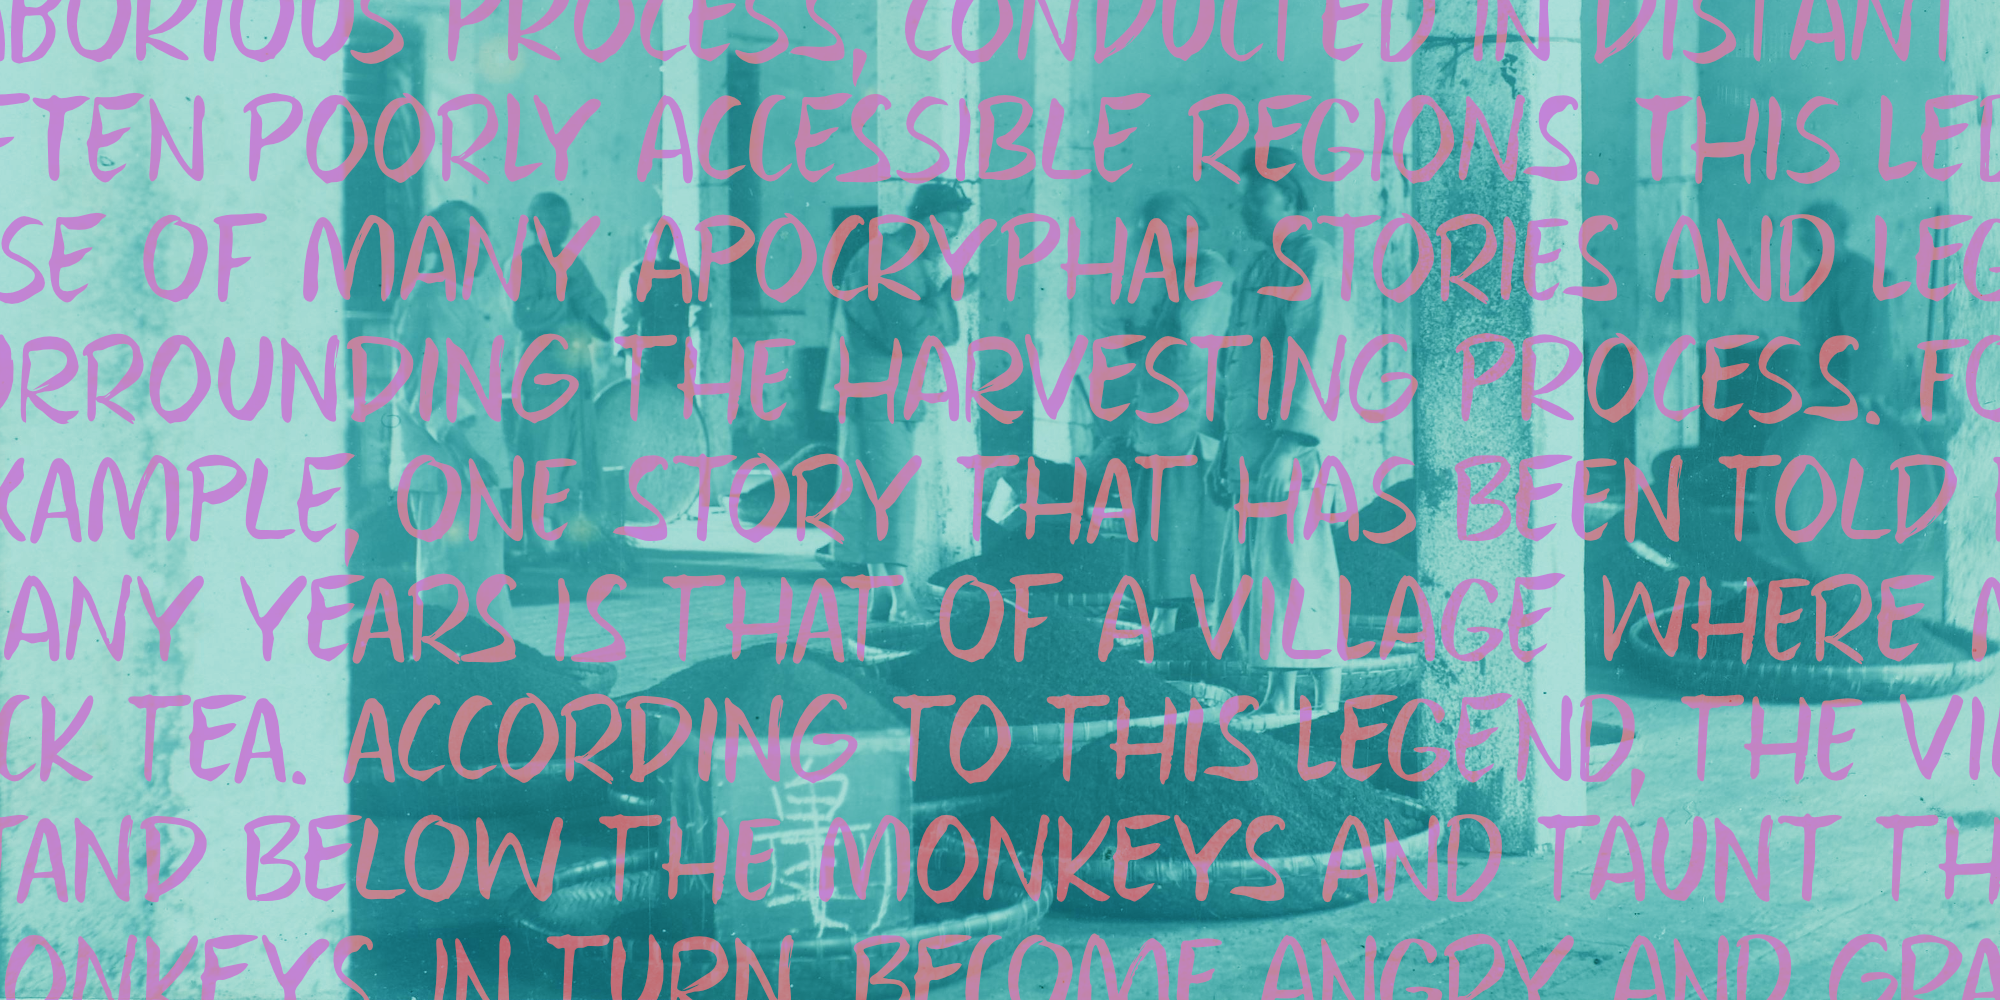 ABORIOUS PROCESS, CONDUCTED IN DISTANT
FTEN POORLY ACCESSIBLE REGIONS. THIS LED
SE OF MANY APOCRYPHAL STORIES AND LEG
URROUNDING THE HARVESTING PROCESS. FO
XAMPLE, ONE STORY THAT HAS BEEN TOLD
ANY YEARS IS THAT OF A VILLAGE WHERE
CK TEA. ACCORDING TO THIS LEGEND, THE VIL
TAND BELOW THE MONKEYS AND TAUNT TH
ONKEYS, IN TURN, BECOME ANGRY AND GRA